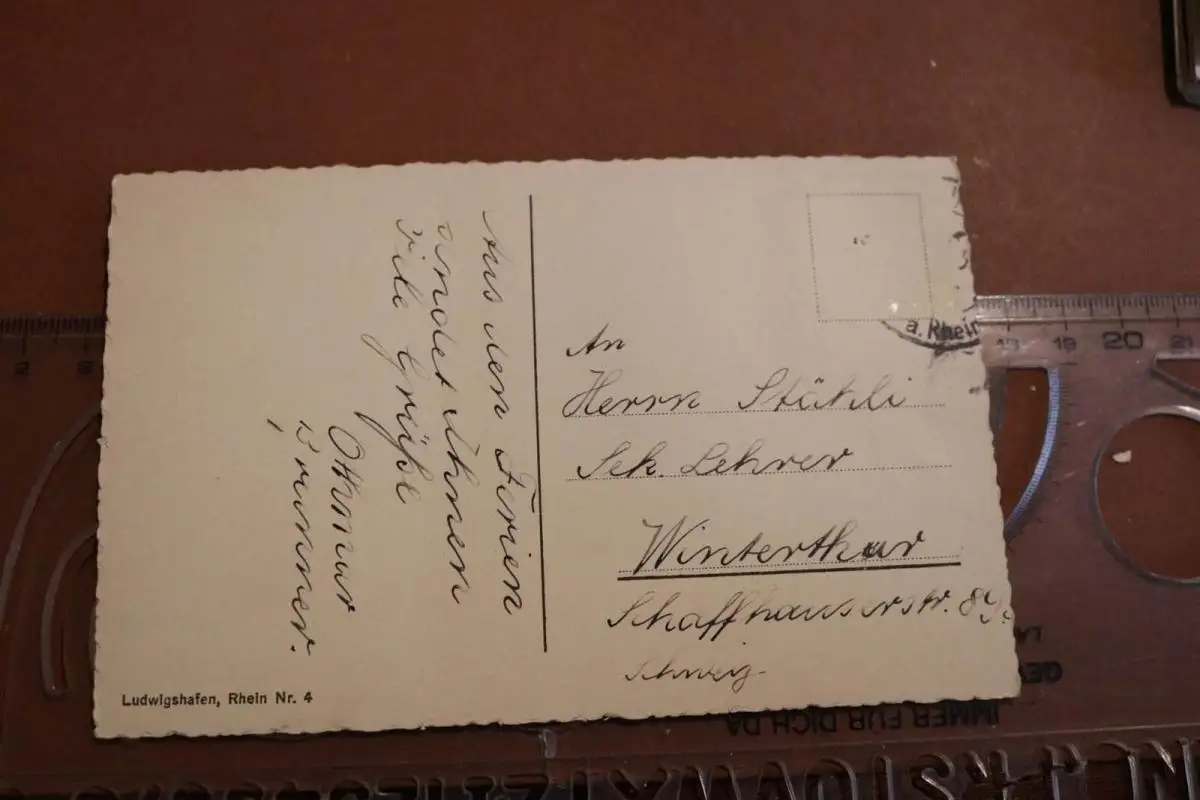 Aus den Ferien
sendet Ihnen
viele Grüße
Othmar
Brunner.
An
Herrn Stähli
Sek. Lehrer
Winterthur
Schaffhauserstr. 89
Schweiz
a. Rhein
Ludwigshafen, Rhein Nr. 4
19 20 21
2
IMMER FÜR DICH DA